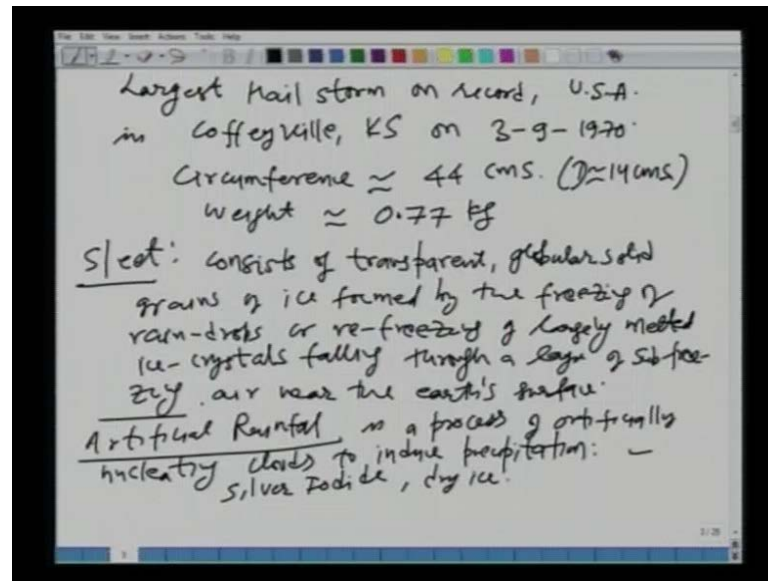 File Edit View Insert Actions Tools Help
Largest Hail storm on record, U.S.A.
in Coffeyville, KS on 3-9-1970.
Circumference ≃ 44 cms. (D≃14cms)
Weight ≃ 0.77 kf
Sleet: consists of transparent, globular solid
grains of ice formed by the freezing of
rain-drops or re-freezing of largely melted
ice-crystals falling through a layer of sub-free-
zing air near the earth's surface.
Artificial Rainfal is a process of artificially
nucleating clouds to induce precipitation: –
Silver Iodide, dry ice.